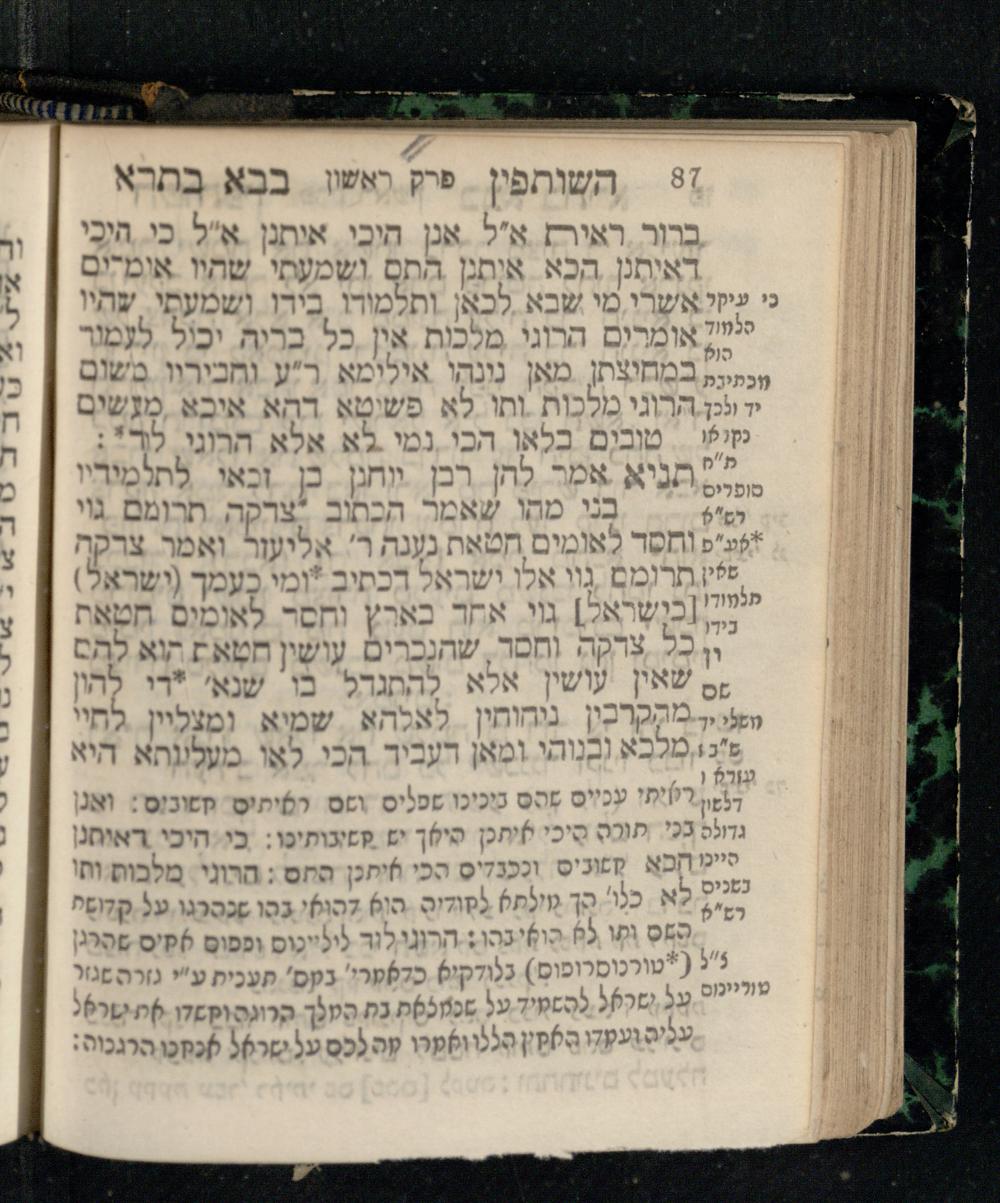 87 השותפין פרק ראשון בבא בתרא
ברור ראית א"ל אנן היכי איתנן א"ל כי היכי
דאיתנן הכא איתנן התם ושמעתי שהיו אומרים
אשרי מי שבא לכאן ותלמודו בידו ושמעתי שהיו
אומרים הרוגי מלכות אין כל בריה יכול לעמוד
במחיצתן מאן נינהו אילימא ר"ע וחביריו משום
הרוגי מלכות ותו לא פשיטא דהא איכא מעשים
טובים בלאו הכי נמי לא אלא הרוגי לוד* :
תניא אמר להן רבן יוחנן בן זכאי לתלמידיו
בני מהו שאמר הכתוב *צדקה תרומם גוי
וחסד לאומים חטאת נענה ר' אליעזר ואמר צדקה
תרומם גוי אלו ישראל דכתיב *ומי כעמך (ישראל)
[כישראל] גוי אחד בארץ וחסד לאומים חטאת
כל צדקה וחסד שהנכרים עושין חטאת הוא להם
שאין עושין אלא להתגדל בו שנא' *די להון
מהקרבין ניחוחין לאלהא שמיא ומצליין לחיי
מלכא ובנוהי ומאן דעביד הכי לאו מעליותא היא
ראיתי עניים שהם בינינו שפלים ושם ראיתים חשובים: ואנן
בני תורה היכי איתנן היאך יש חשיבותינו: כי היכי דאיתנן
הכא חשובים ונכבדים הכי איתנן התם: הרוגי מלכות ותו
לא כלו' הך מילתא לחודיה הוא דהואי בהו שנהרגו על קדושת
השם ותו לא הואי בהו: הרוגי לוד לוליינוס ופפוס אחים שהרגן
(*טורנוסרופוס) בלודקיא כדאמרי' במס' תענית ע"י גזרה שגזר
על ישראל להשמיד על שנמצאת בת המלך הרוגה וחשדו את ישראל
עליה ועמדו האחין הללו ואמרו מה לכם על ישראל אנחנו הרגנוה:
כי עיקר
הלמוד
הוא
מכתיבת
יד ולכך
נקראו
ת"ח
סופרים
רש"א
*אע"פ
שאין
תלמודו
בידו
ין
שם
משלי יד
ש"ב ז
עזרא ו
דלשון
גדולה
היינו
בשנים
רש"א
ז"ל
טוריינוס